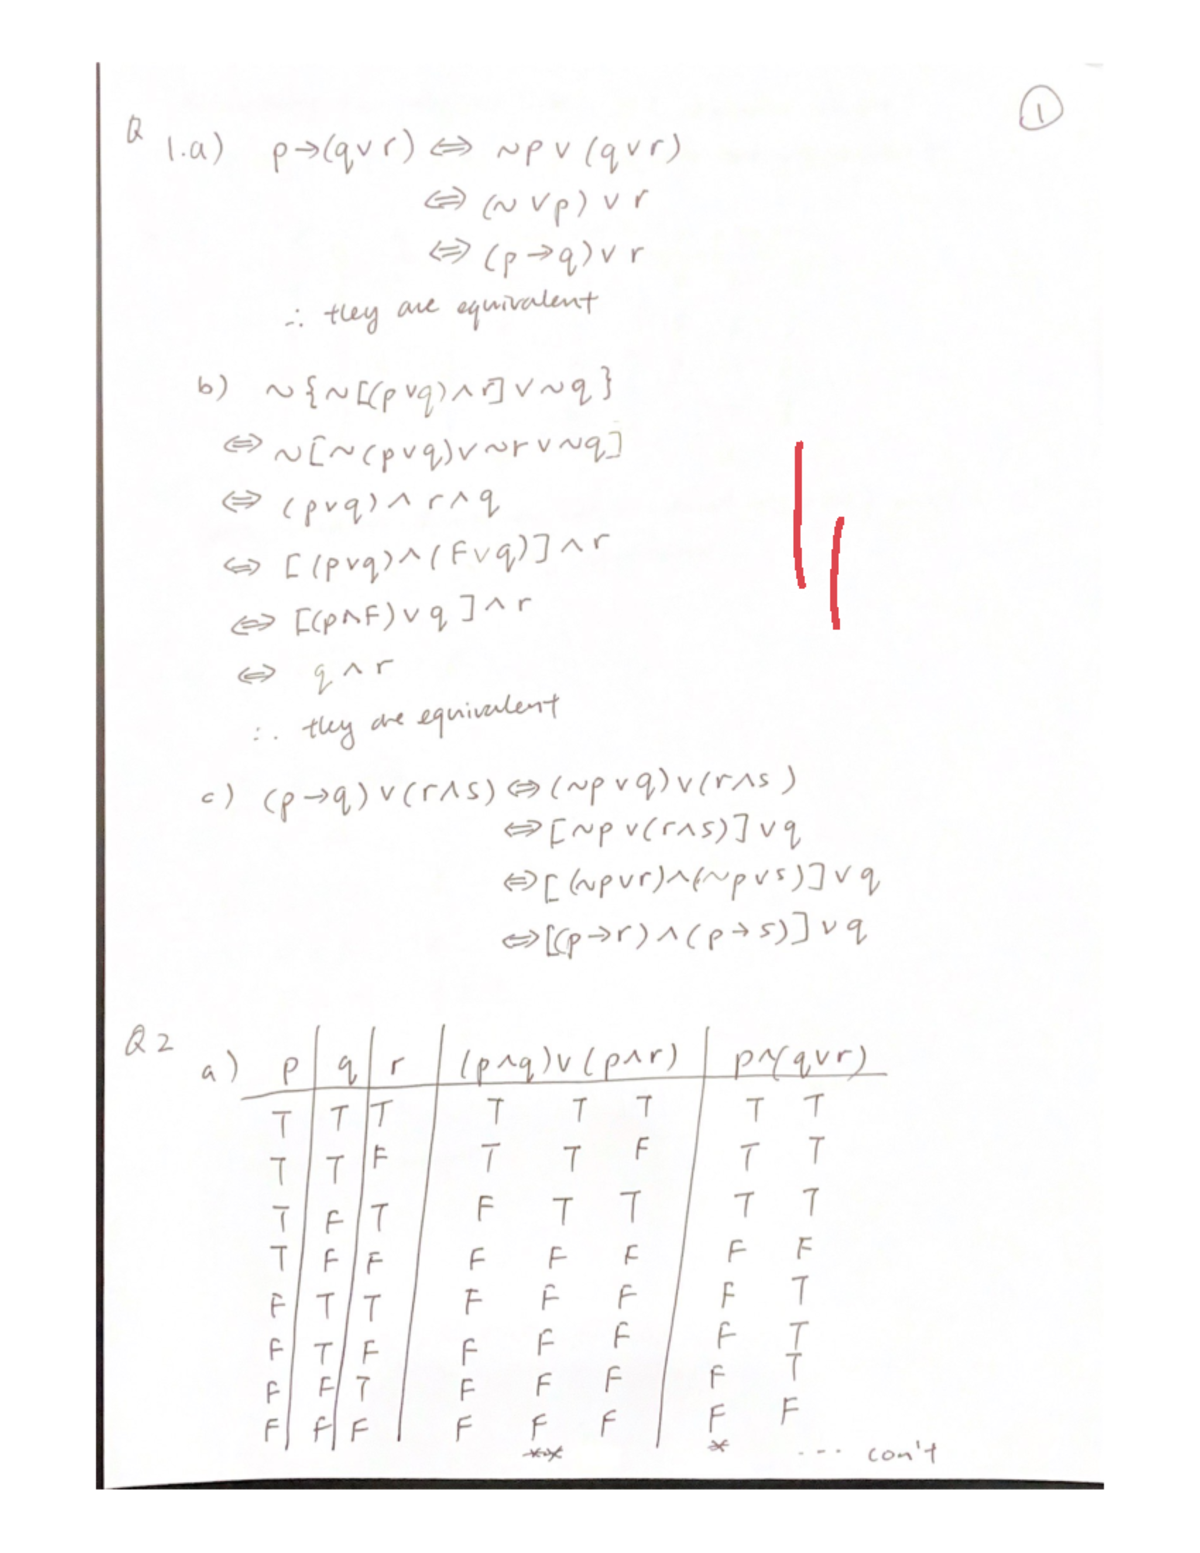 ①
Q 1.a) p→(q∨r) ⇔ ~p∨(q∨r)
⇔ (~∨p)∨r
⇔ (p→q)∨r
∴ they are equivalent
b) ~{~[(p∨q)∧r]∨~q}
⇔ ~[~(p∨q)∨~r∨~q]
⇔ (p∨q)∧r∧q
⇔ [(p∨q)∧(F∨q)]∧r
⇔ [(p∧F)∨q]∧r
⇔ q∧r
∴ they are equivalent
c) (p→q)∨(r∧s) ⇔ (~p∨q)∨(r∧s)
⇔ [~p∨(r∧s)]∨q
⇔ [(~p∨r)∧(~p∨s)]∨q
⇔ [(p→r)∧(p→s)]∨q
Q2
a) p q r (p∧q)∨(p∧r) p∧(q∨r)
T T T T T T T T
T T F T T F T T
T F T F T T T T
T F F F F F F F
F T T F F F F T
F T F F F F F T
F F T F F F F T
F F F F F F F F
** *
... con't